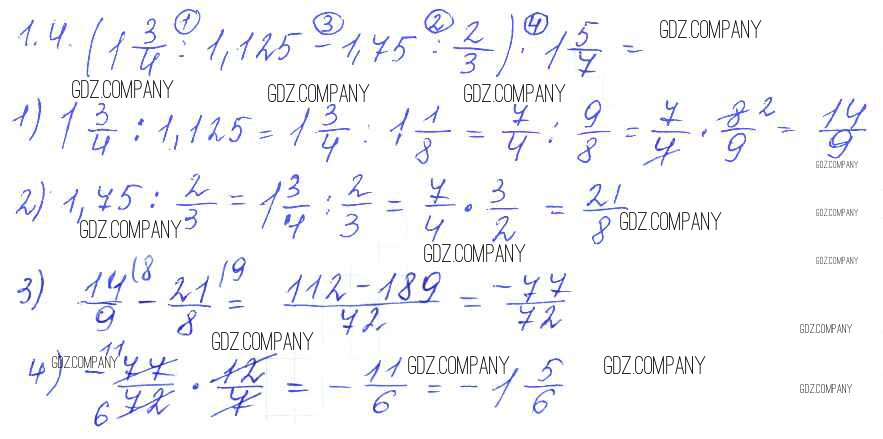 1.4. (1 3/4 : 1,125 - 1,75 : 2/3) · 1 5/7 =
① ③ ② ④
GDZ.COMPANY
GDZ.COMPANY GDZ.COMPANY GDZ.COMPANY
1) 1 3/4 : 1,125 = 1 3/4 : 1 1/8 = 7/4 : 9/8 = 7/4 · 8/9 2 = 14/9
GDZ.COMPANY
2) 1,75 : 2/3 = 1 3/4 : 2/3 = 7/4 · 3/2 = 21/8
GDZ.COMPANY GDZ.COMPANY GDZ.COMPANY
GDZ.COMPANY GDZ.COMPANY
3) 14/9 (8 - 21/8 (9 = 112-189/72 = -77/72
GDZ.COMPANY GDZ.COMPANY
4) - 11 77/72 6 · 12/7 = - 11/6 = - 1 5/6
GDZ.COMPANY GDZ.COMPANY GDZ.COMPANY GDZ.COMPANY